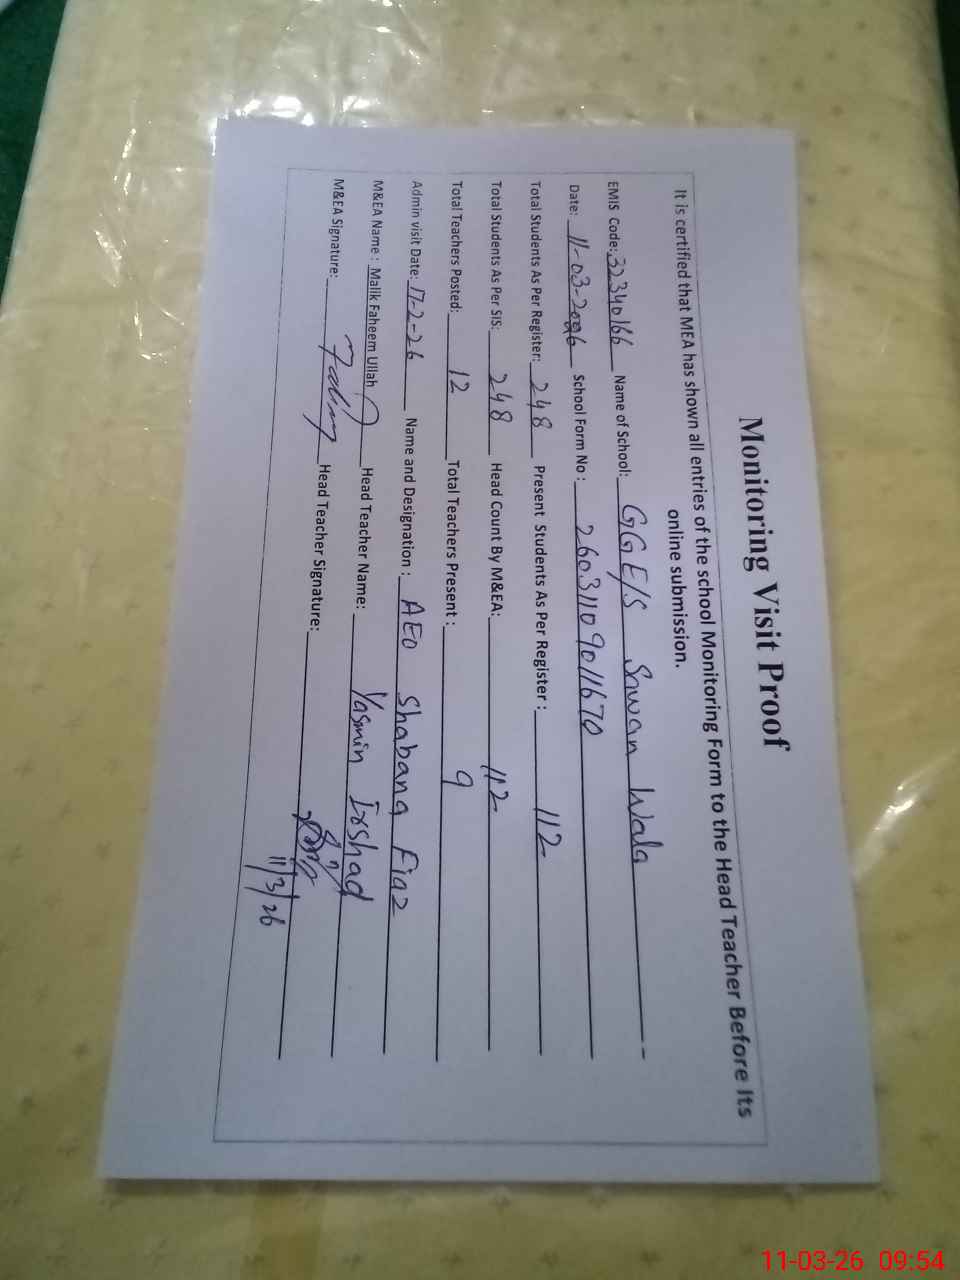 Monitoring Visit Proof
It is certified that MEA has shown all entries of the school Monitoring Form to the Head Teacher Before Its
online submission.
EMIS Code: 32340166 Name of School: GGE/S Sawan Wala
Date: 11-03-2026 School Form No : 26031109011670
Total Students As Per Register: 248 Present Students As Per Register : 112
Total Students As Per SIS: 248 Head Count By M&EA: 112
Total Teachers Posted: 12 Total Teachers Present : 9
Admin visit Date: 17-2-26 Name and Designation : AEO Shabana Fiaz
M&EA Name : Malik Faheem Ullah Head Teacher Name: Yasmin Irshad
M&EA Signature: Fahim Head Teacher Signature:
11/3/26
11-03-26 09:54